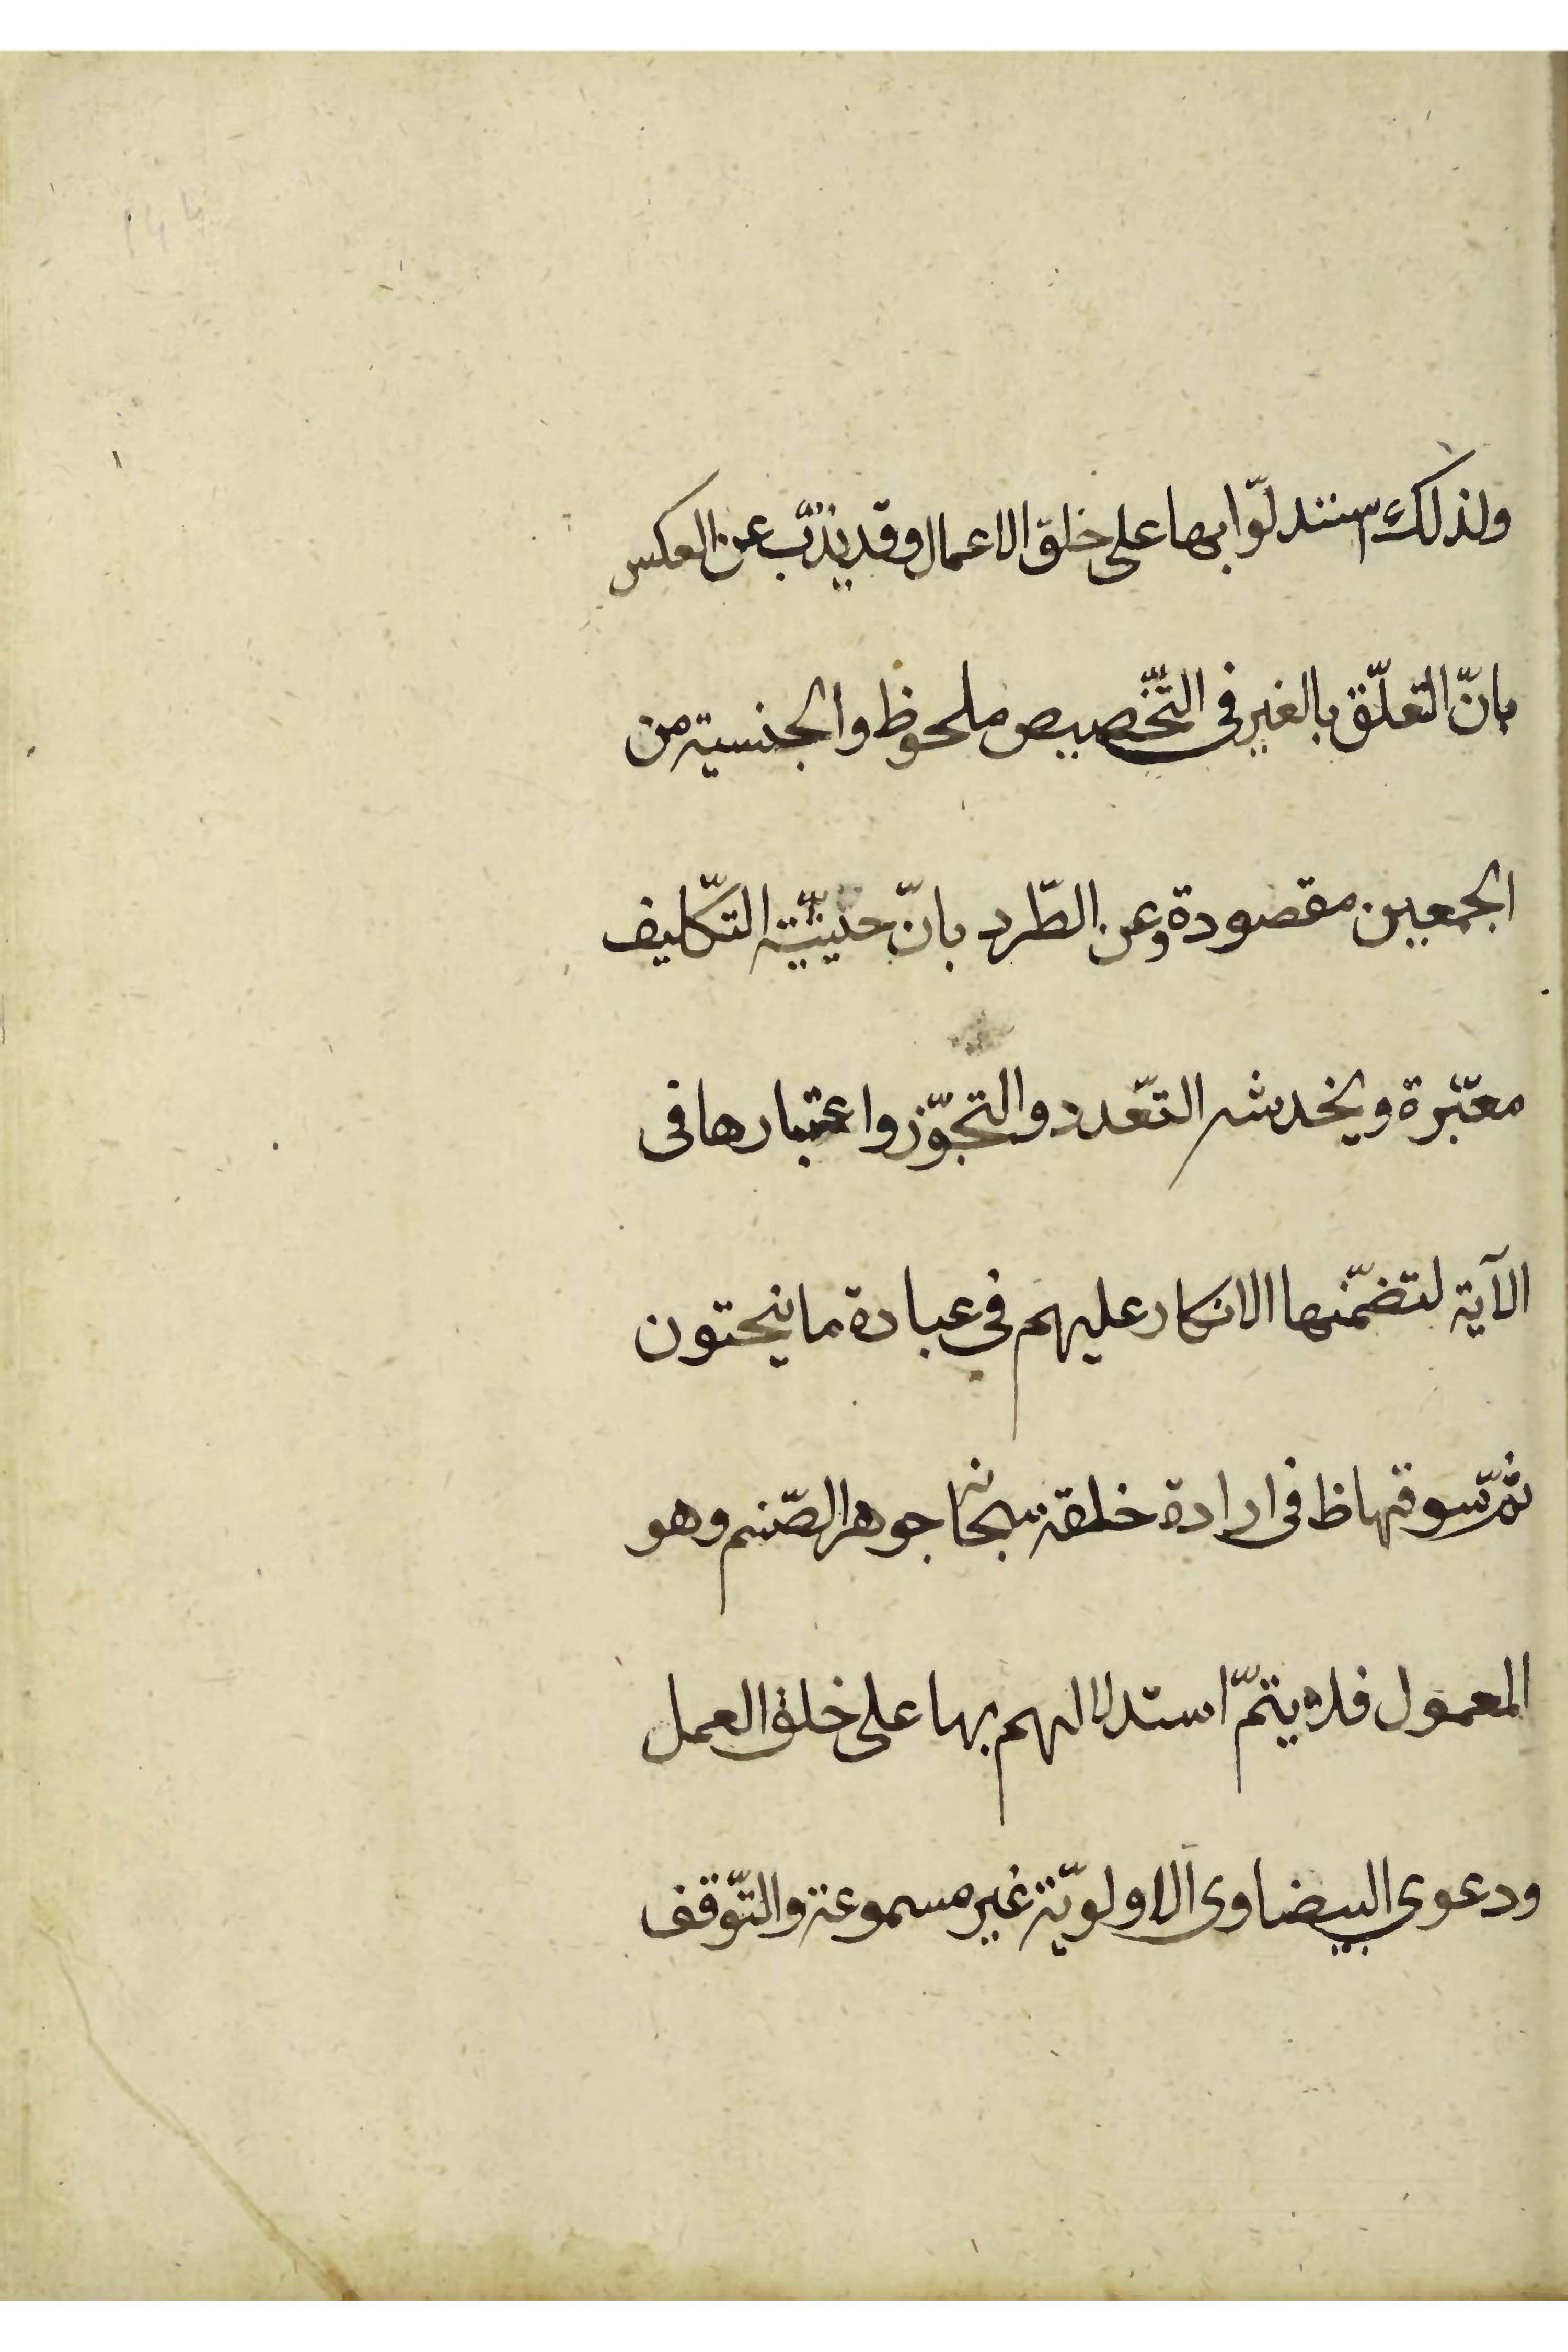 ولذلك استدلّوا بها على خلق الاعمال وقد يذبّ عن العكس
بانّ التعلّق بالغير فى التّخصيص ملحوظ والجنسية من
الجمعين مقصودة وعن الطّرد بانّ حيثيّة التّكليف
معتبرة ويخدشه التّعدد والتجوّز واعتبارها فى
الآية لتضمّنها الانكار عليهم فى عبادة ما ينحتون
ثمّ سوقها ظ فى ارادة خلقه سبحانه جوهر الصّنم وهو
المعمول فلا يتمّ استدلالهم بها على خلق العمل
ودعوى البيضاوى الاولويّة غير مسموعة والتّوقف